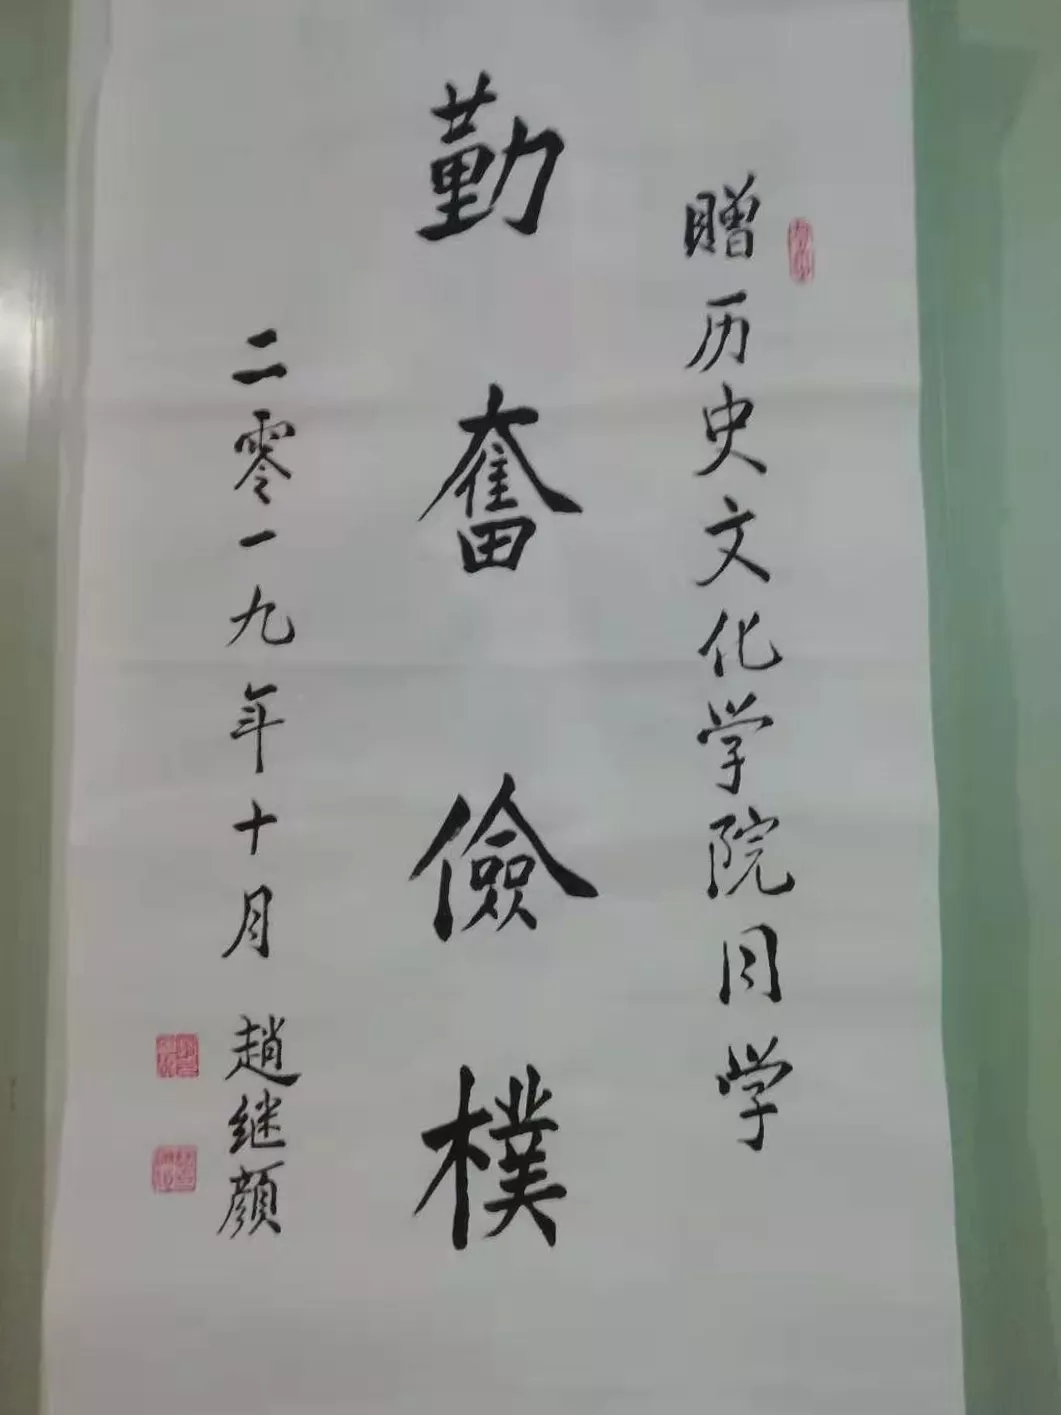 贈历史文化学院同学
勤奮儉樸
二零一九年十月 趙继颜